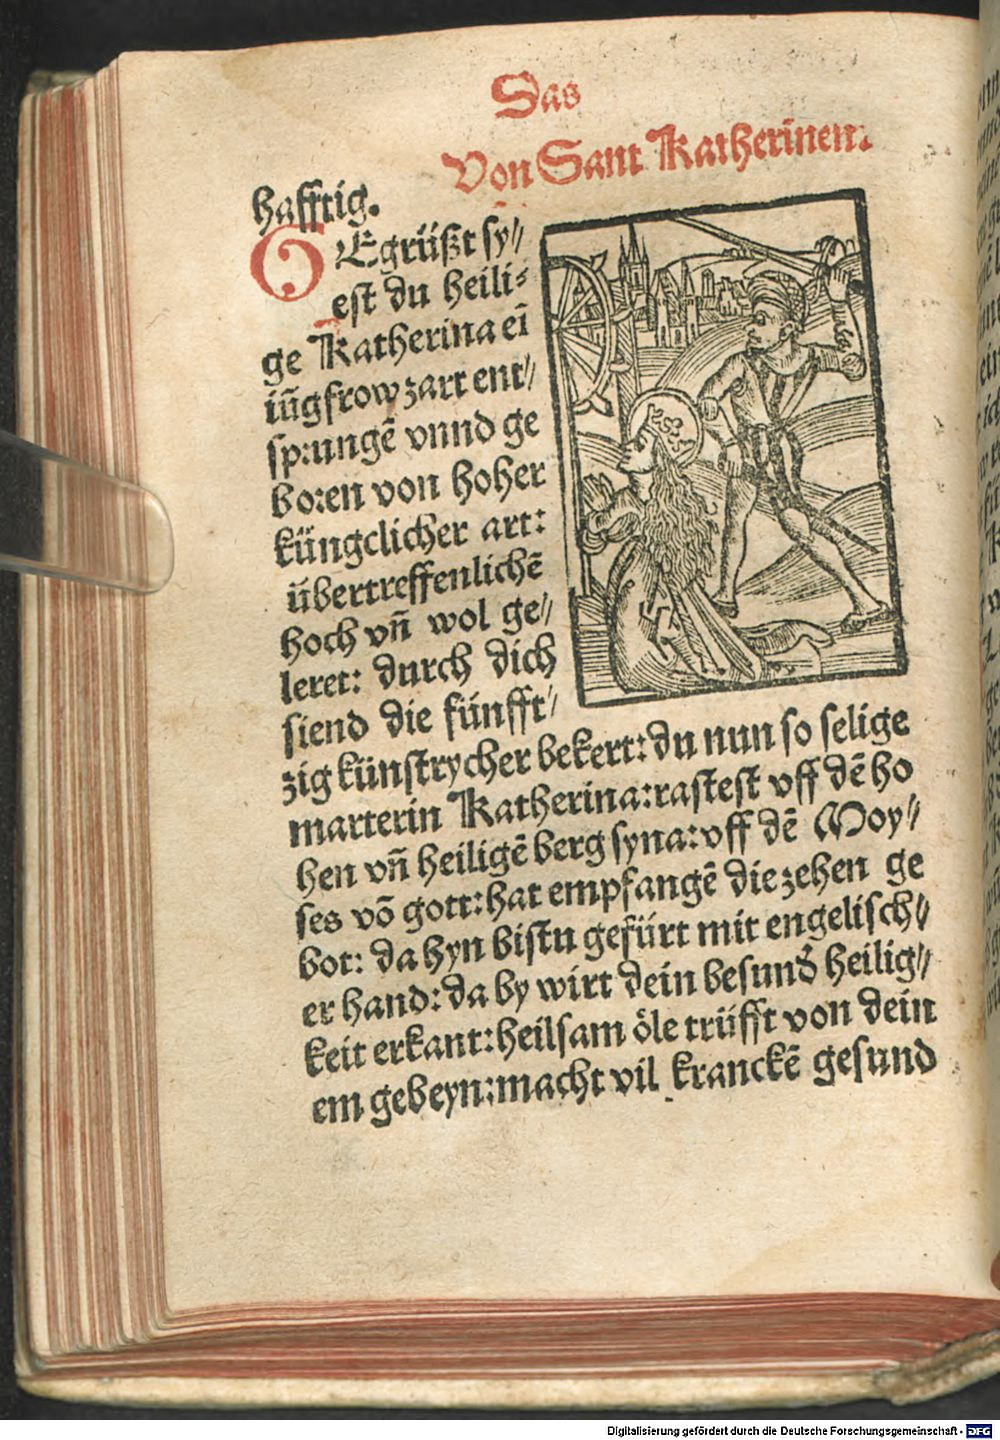 Das
Von Sant Katherinen.
hafftig.
OEgrüßt sy//
est du heili⸗
ge Katherina eī
iūgfrow zart ent//
sprungē vnnd ge
boren von hoher
küngclicher art:
übertreffenlichē
hoch vñ wol ge//
leret: durch dich
siend die fünfft//
zig künstrycher bekert: du nun so selige
marterin Katherina: rastest vff dē ho
hen vñ heiligē berg syna: vff dē Moy//
ses vō gott: hat empfangē die zehen ge
bot: da hyn bistu gefürt mit engelisch//
er hand: da by wirt dein besund̕ heilig//
keit erkant: heilsam öle trüfft von dein
em gebeyn: macht vil kranckē gesund
Digitalisierung gefördert durch die Deutsche Forschungsgemeinschaft - DFG